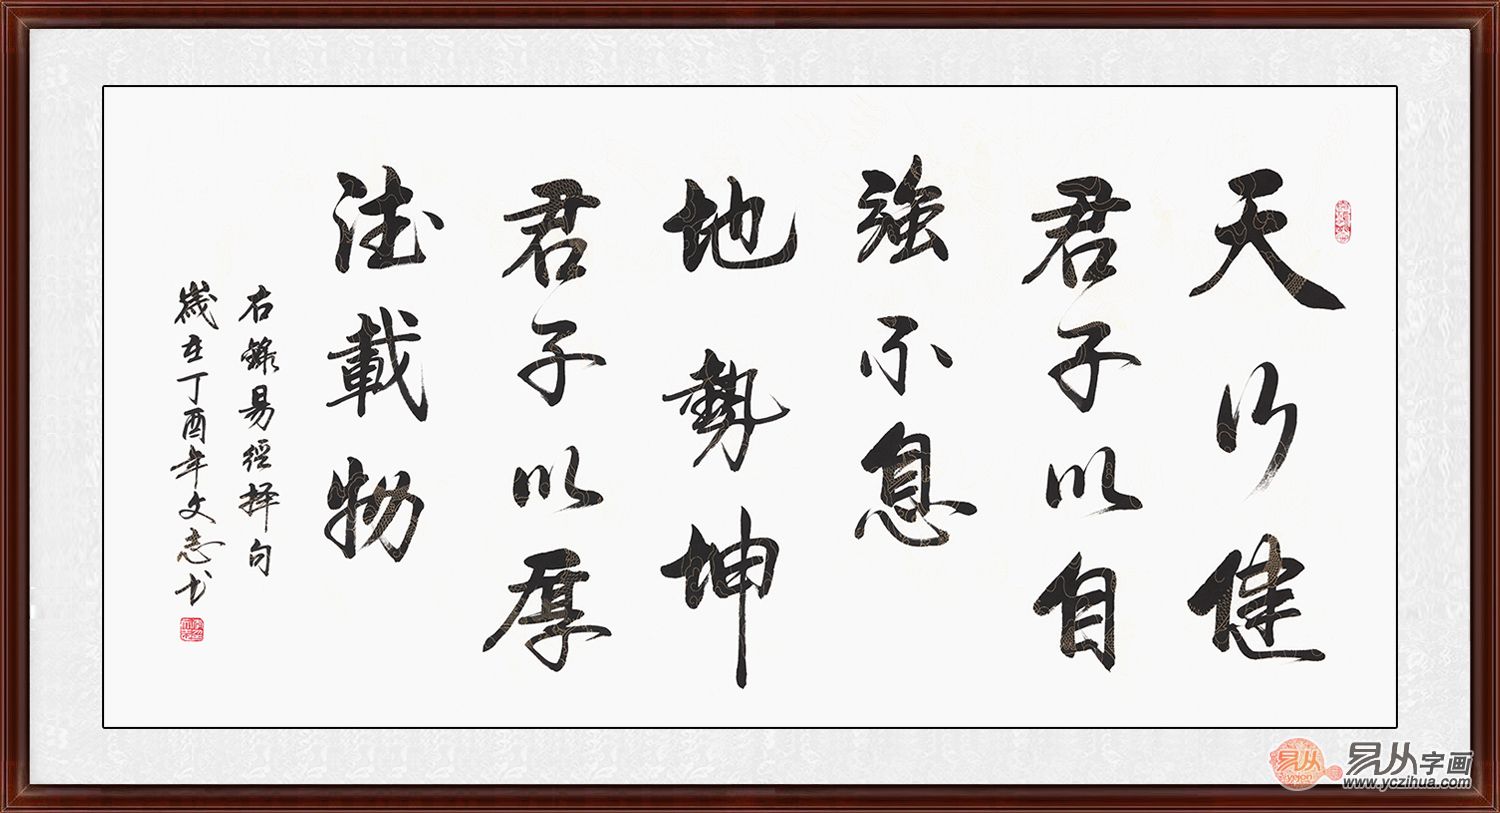 天行健
君子以自
強不息
地勢坤
君子以厚
德載物
右錄易經择句
歲在丁酉年文志书
易从
yi con
易从字画
www.yczihua.com